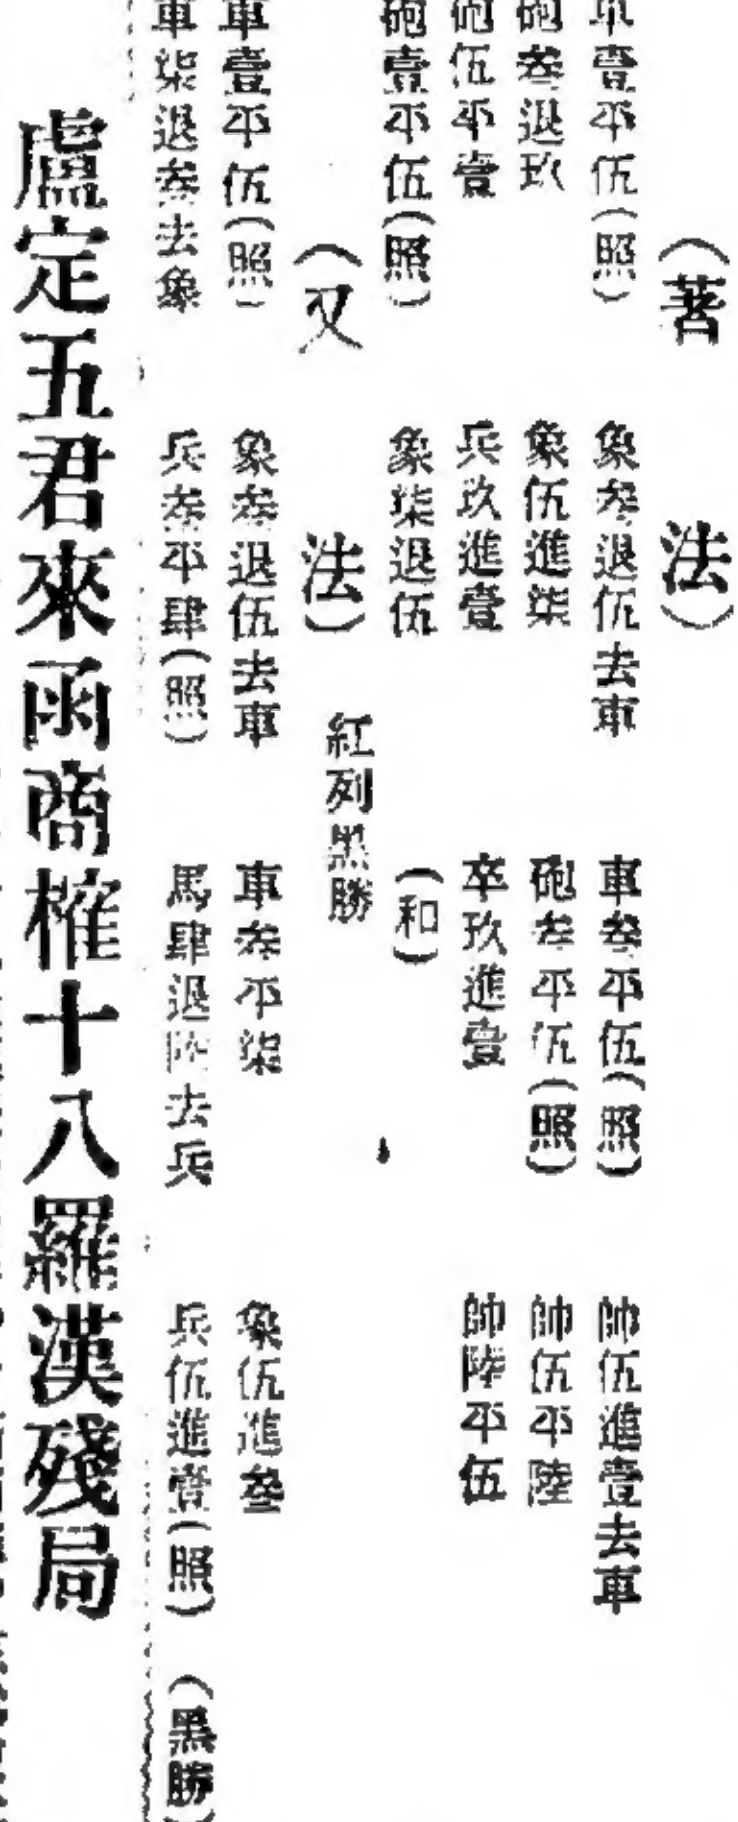 （著法）
車壹平伍（照） 象叁退伍去車 車叁平伍（照） 帥伍進壹去車
砲叁退玖 象伍進柒 砲叁平伍（照） 帥伍平陸
砲伍平壹 兵玖進壹 卒玖進壹 帥陸平伍
砲壹平伍（照） 象柒退伍 （和）
（又法） 紅列黑勝
車壹平伍（照） 象叁退伍去車 車叁平柒 象伍進叁
車柒退叁去象 兵叁平肆（照） 馬肆退陸去兵 兵伍進壹（照） （黑勝）
盧定五君來函商榷十八羅漢殘局